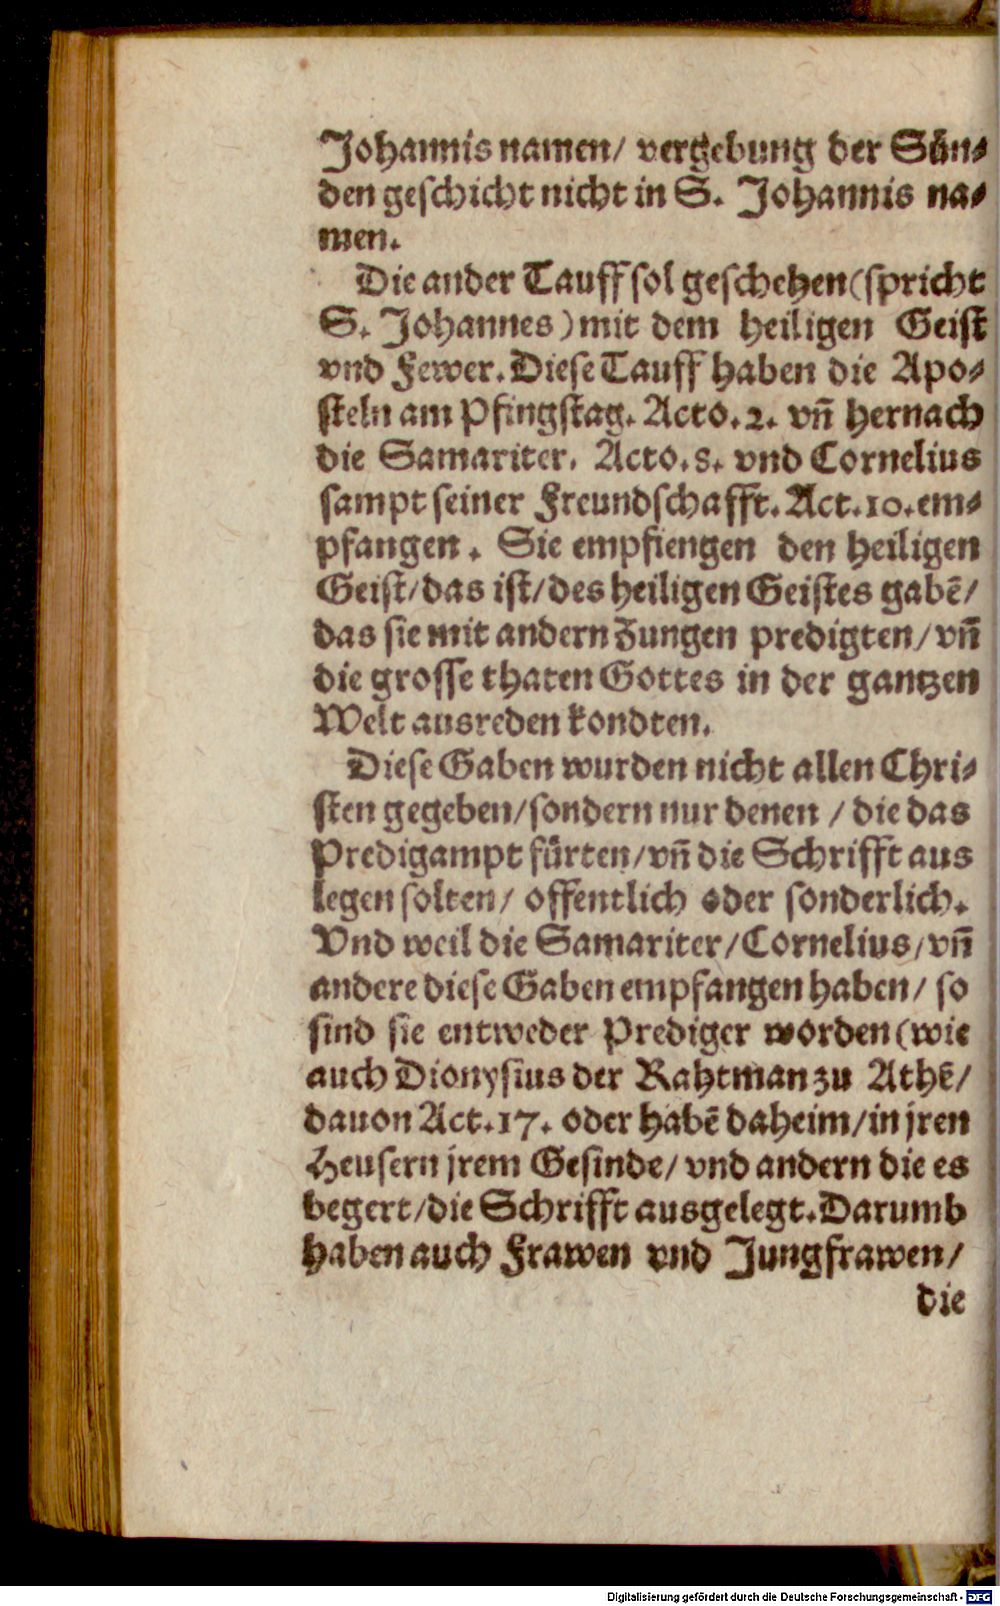 Johannis namen/ vergebung der Sün⸗
den geschicht nicht in S. Johannis na⸗
men.
Die ander Tauff sol geschehen (spricht
S. Johannes) mit dem heiligen Geist
vnd Fewer. Diese Tauff haben die Apo⸗
steln am Pfingstag. Acto. 2. vn̄ hernach
die Samariter. Acto. 8. vnd Cornelius
sampt seiner Freundschafft. Act. 10. em⸗
pfangen. Sie empfiengen den heiligen
Geist/ das ist/ des heiligen Geistes gabē/
das sie mit andern Zungen predigten/ vn̄
die grosse thaten Gottes in der gantzen
Welt ausreden kondten.
Diese Gaben wurden nicht allen Chri⸗
sten gegeben/ sondern nur denen / die das
Predigampt fürten/ vn̄ die Schrifft aus
legen solten/ offentlich oder sonderlich.
Vnd weil die Samariter/ Cornelius/ vn̄
andere diese Gaben empfangen haben/ so
sind sie entweder Prediger worden (wie
auch Dionysius der Rahtman zu Athē/
dauon Act. 17. oder habē daheim/ in jren
Heusern jrem Gesinde/ vnd andern die es
begert/ die Schrifft ausgelegt. Darumb
haben auch Frawen vnd Jungfrawen/
die
Digitalisierung gefördert durch die Deutsche Forschungsgemeinschaft - DFG